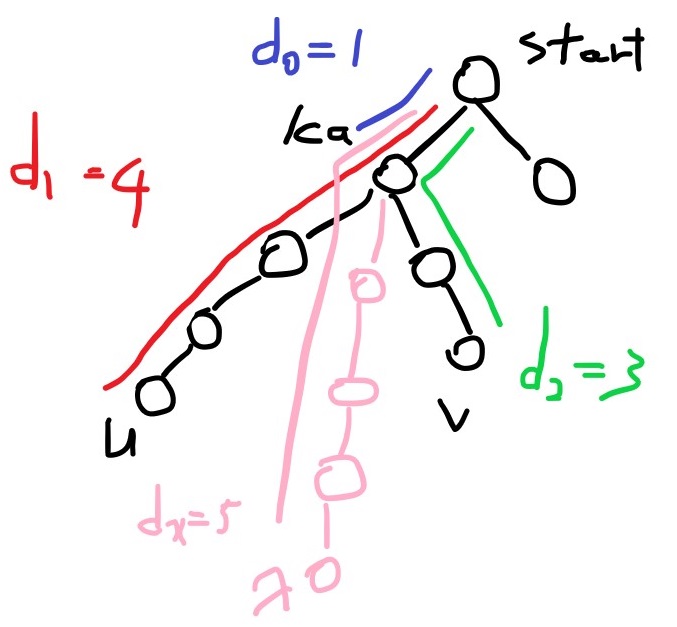 d₀=1
start
lca
d₁=4
d₂=3
u
v
dₓ=5